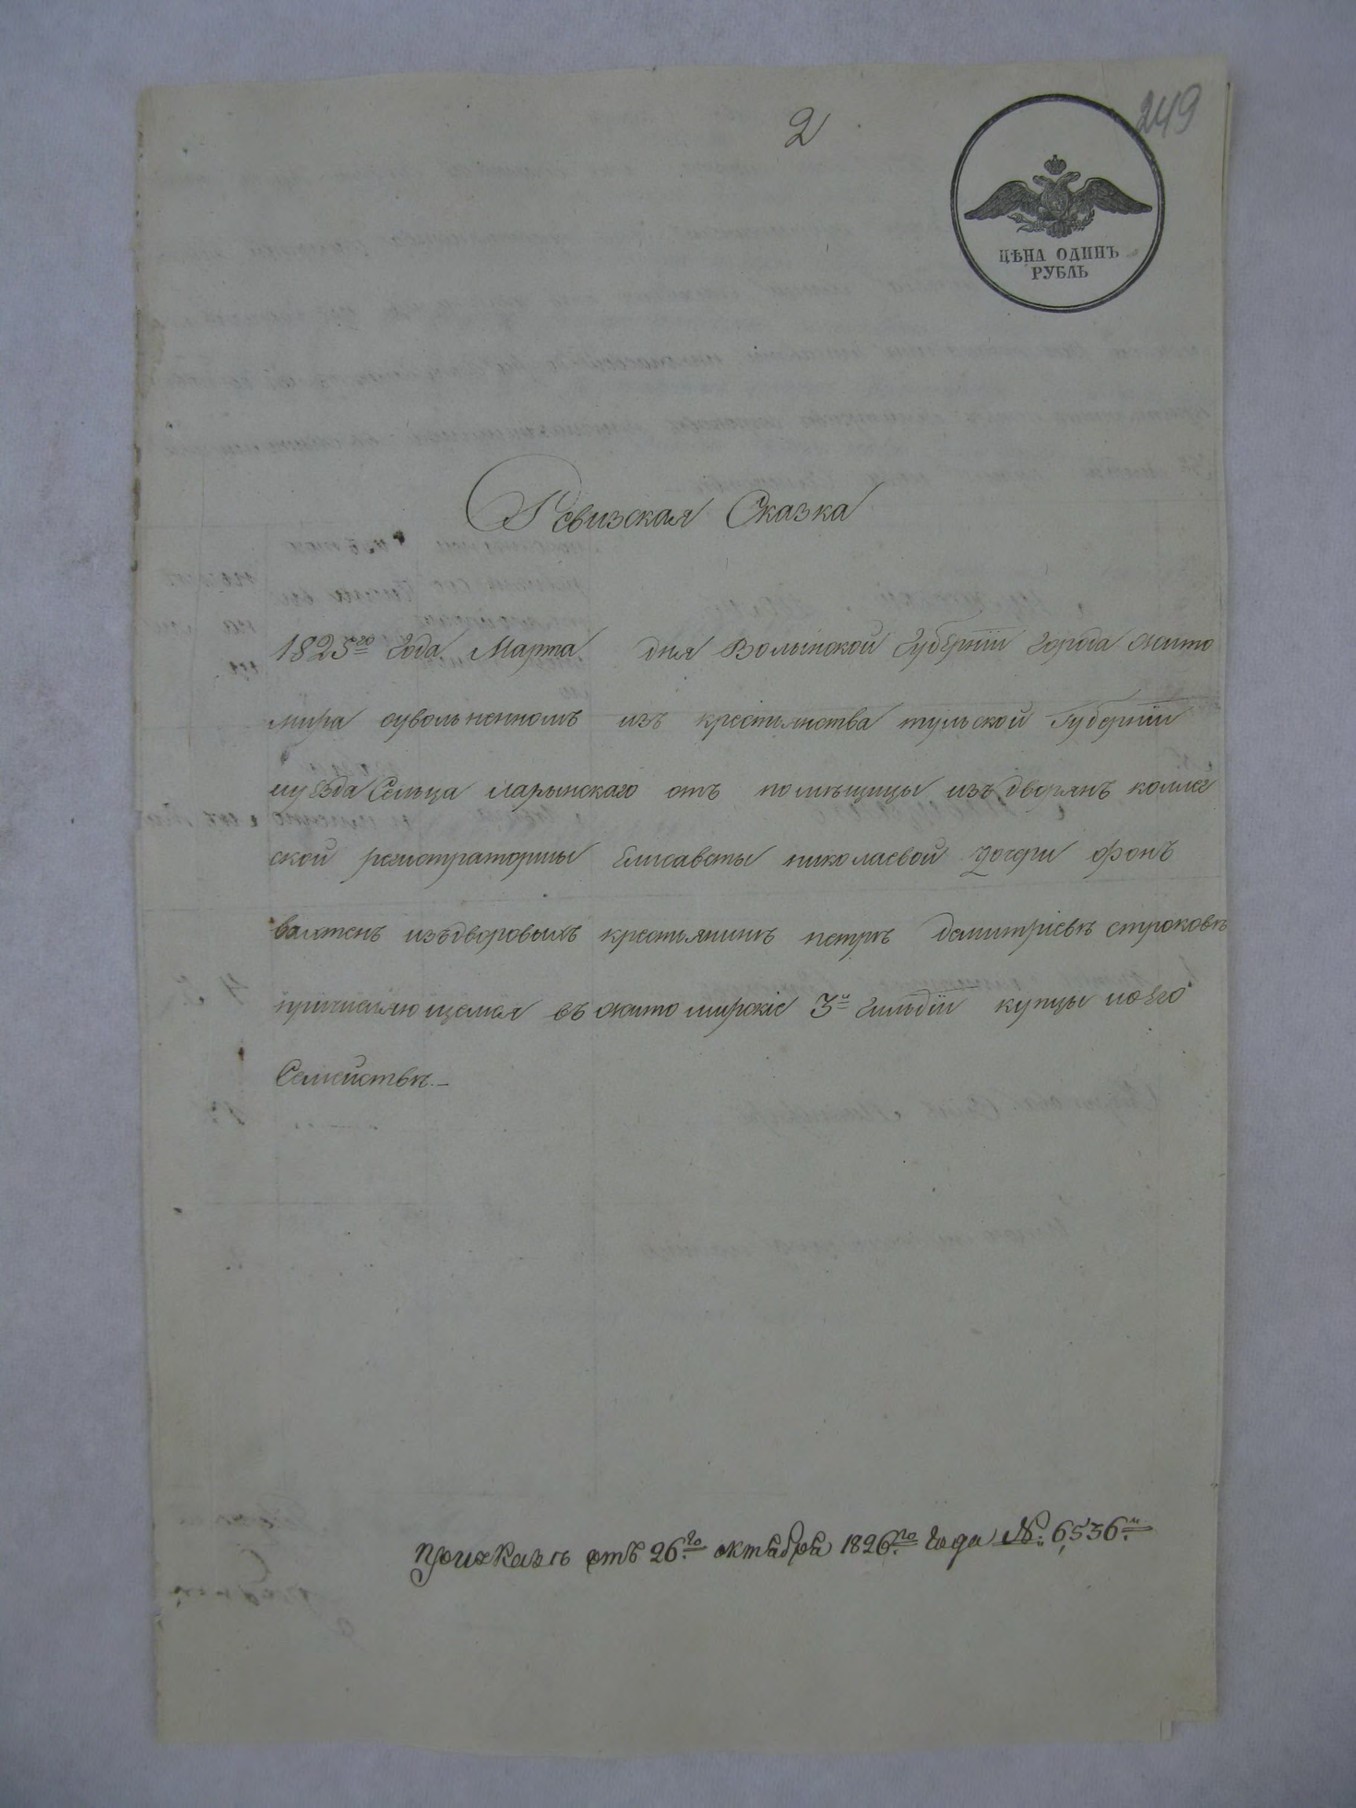 2
249
ЦѢНА ОДИНЪ
РУБЛЬ
Ревизская Сказка
1825го Года Марта дня Волынской Губернии Города Жито
мира оувольненномъ изъ крестьянства тульской Губернии
иуезда Сельца ларынскаго отъ помещицы изъ дворянъ коллег
ской регистраторшы Елисаветы николаевой дочери фонъ
изъдворовыхъ крестьянинъ петръ демитриевъ строковъ
причисляющемся въ житомирские 3й Гильдии купцы ноего
Семействе
при указъ отъ 26го октября 1826го Года №: 6536м